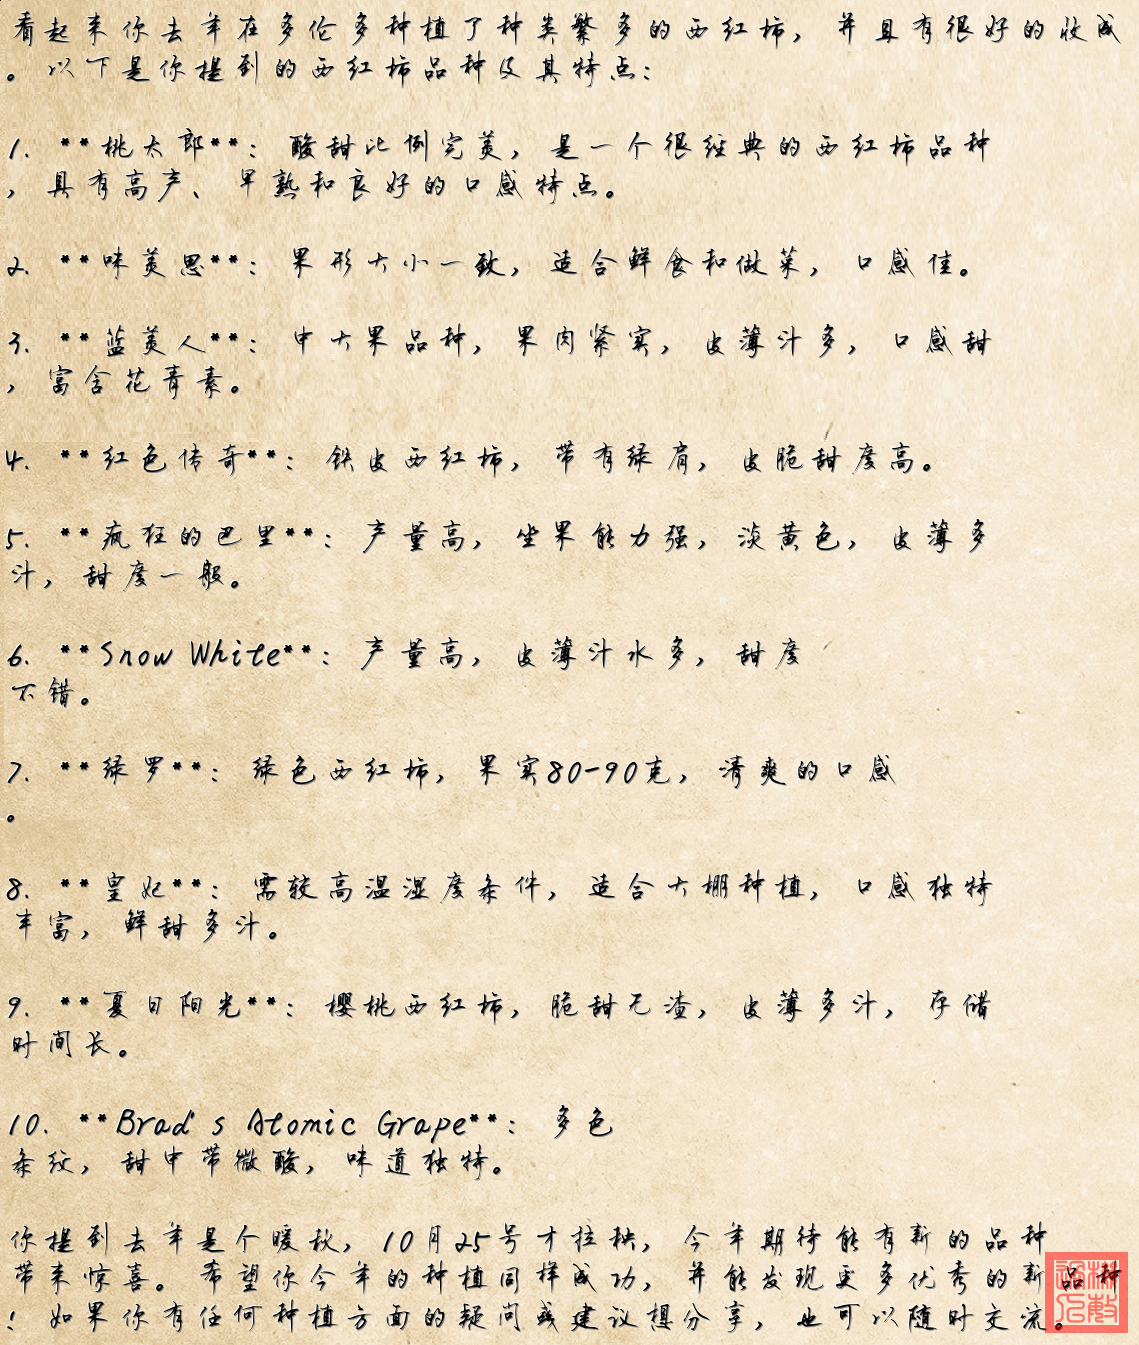 看起来你去年在多伦多种植了种类繁多的西红柿，并且有很好的收成
。以下是你提到的西红柿品种及其特点：
1. **桃太郎**：酸甜比例完美，是一个很经典的西红柿品种
，具有高产、早熟和良好的口感特点。
2. **味美思**：果形大小一致，适合鲜食和做菜，口感佳。
3. **蓝美人**：中大果品种，果肉紧实，皮薄汁多，口感甜
，富含花青素。
4. **红色传奇**：铁皮西红柿，带有绿肩，皮脆甜度高。
5. **疯狂的巴里**：产量高，坐果能力强，淡黄色，皮薄多
汁，甜度一般。
6. **Snow White**：产量高，皮薄汁水多，甜度
不错。
7. **绿罗**：绿色西红柿，果实80-90克，清爽的口感
。
8. **皇妃**：需较高温湿度条件，适合大棚种植，口感独特
丰富，鲜甜多汁。
9. **夏日阳光**：樱桃西红柿，脆甜无渣，皮薄多汁，存储
时间长。
10. **Brad's Atomic Grape**：多色
条纹，甜中带微酸，味道独特。
你提到去年是个暖秋，10月25号才拉秧，今年期待能有新的品种
带来惊喜。希望你今年的种植同样成功，并能发现更多优秀的新品种
！如果你有任何种植方面的疑问或建议想分享，也可以随时交流。